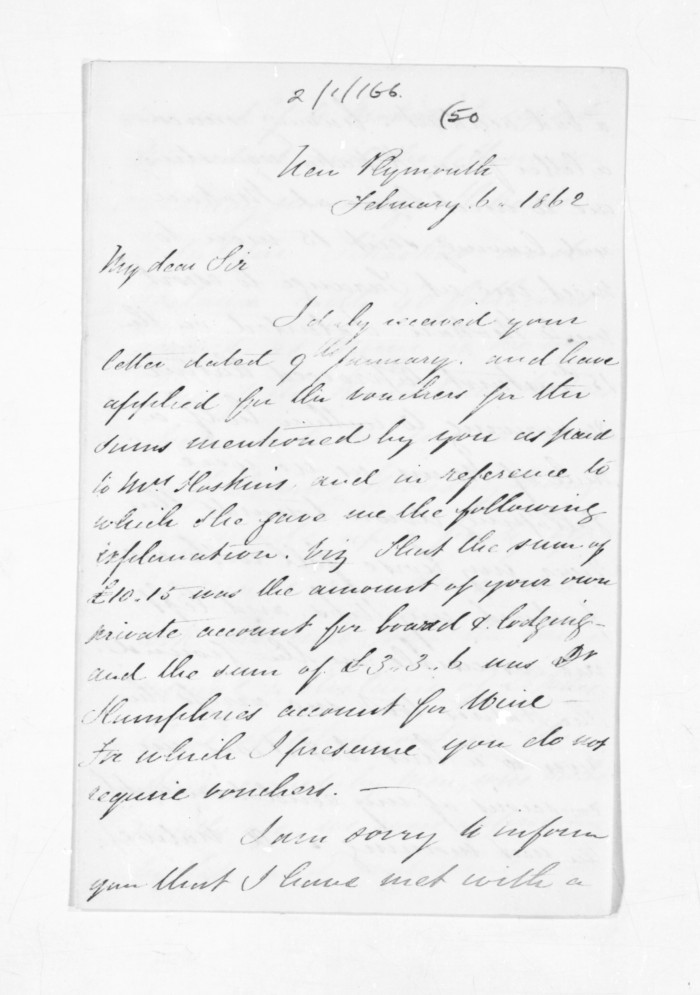 2/1/166.
(50
New Plymouth
February 6. 1862
My dear Sir
I duly received your
letter dated 9th January. and have
applied for the vouchers for the
sums mentioned by you as paid
to Mrs Hoskins, and in reference to
which she gave me the following
explanation. Viz That the sum of
£10.15 was the amount of your own
private account for board & lodging -
and the sum of £3..3..6 was Dr
Humphries account for Wine -
For which I presume you do not
require vouchers. -
I am sorry to inform
you that I have met with a